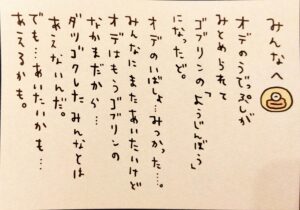 みんなへ
オデのうでっぷしが
みとめられて
ゴブリンの「ようじんぼう」
になったど。
オデのいばしょ…みつかった…。
みんなにまたあいたいけど
オデはもうゴブリンの
なかまだから…
ダツゴクしたみんなとは
あえないんだ。
でも…あいたいかも…
あえるかも。